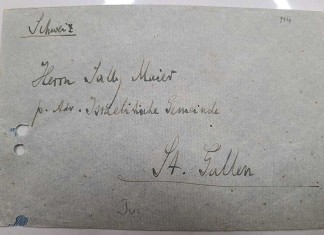 Schweiz
Herrn Sally Maier
p. Adr. Israelitische Gemeinde
St. Gallen